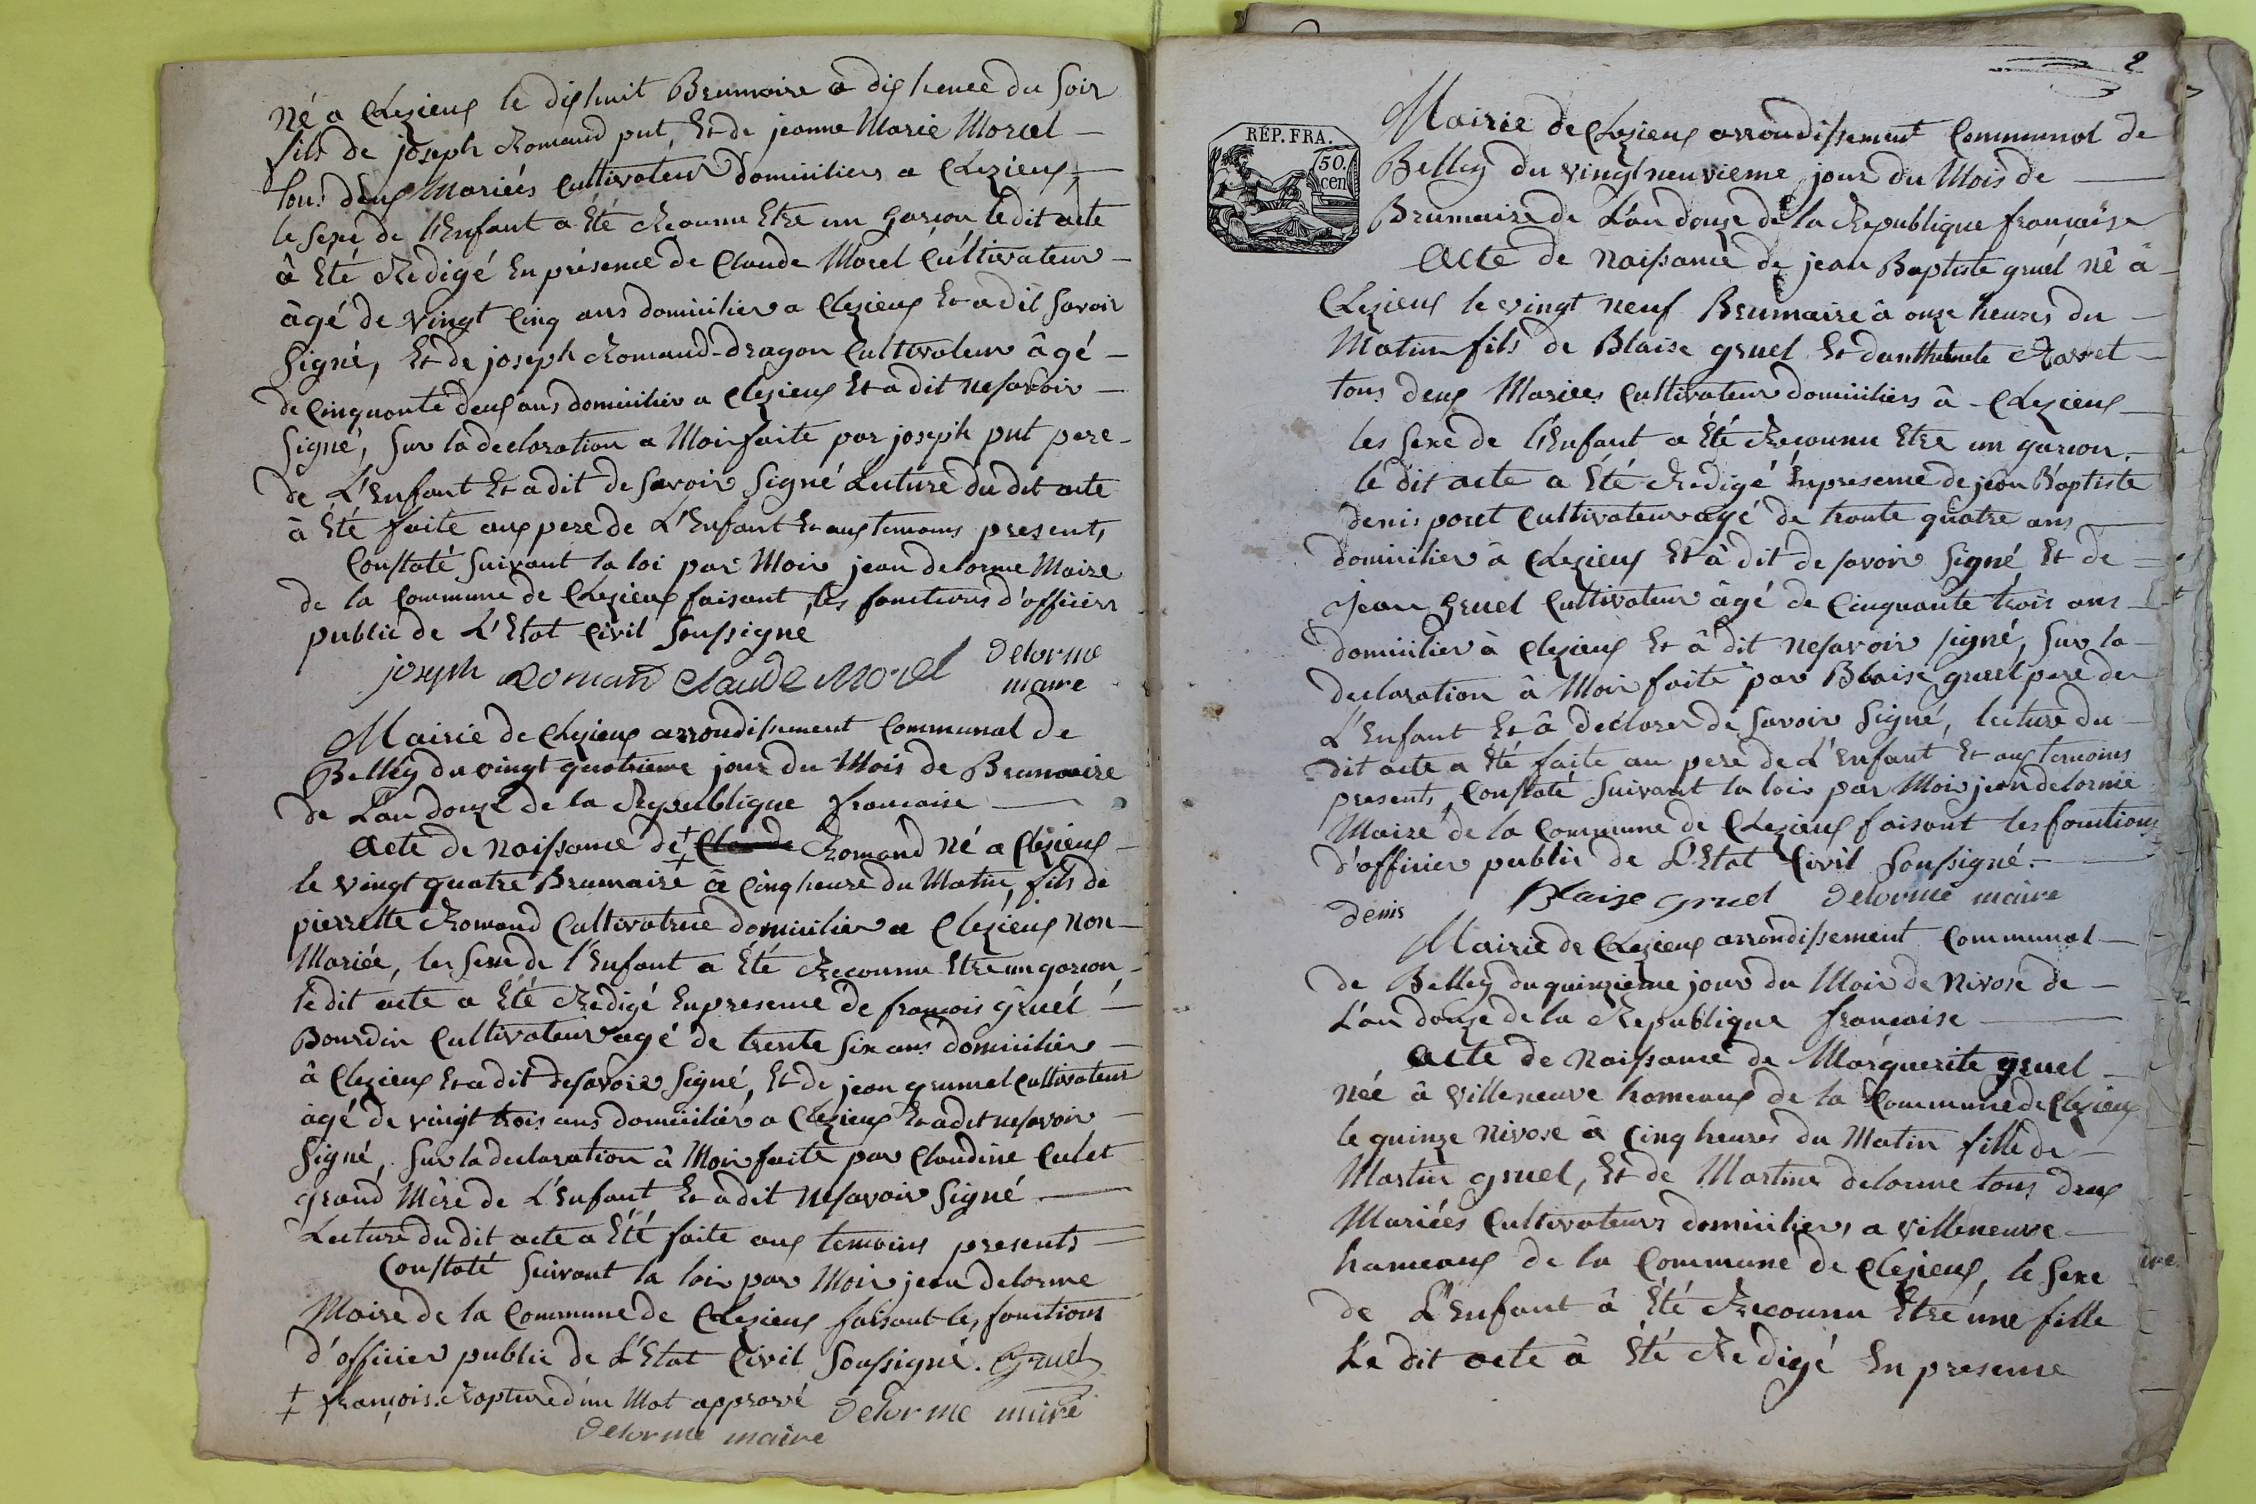 Né a Chezieux le dixhuit Brumaire a dix heure du Soir
fils de joseph Romand put, Et de jeanne Marie Morel
tous deux Mariés Cultivateur domiciliers a Chezieux,
le sexe de l'Enfant a Eté Reconnu Etre un garçon le dit acte
â Eté Redigé En présence de Claude Morel Cultivateur
âgé de vingt Cinq ans domicilier a Chezieux Et a dit savoir
Signé, Et de joseph Romand-dragon Cultivateur âgé
de Cinquante deux ans domicilier a Chezieux Et a dit ne savoir
Signé, Sur la declaration a Moi faite par joseph put pere
de L'Enfant Et a dit de savoir Signé Lecture du dit acte
â Eté faite aux pere de L'Enfant Et aux temoins presents
Constaté Suivant la loi par Moir jean delorme Maire
de la Commune de Chezieux faisant les fonctions d'officier
public de L'Etat Civil Soussigné
joseph Roman Claude Morel Delorme
maire
Mairie de Chezieux arrondissement Communal de
Belley du vingt quatrieme jour du Mois de Brumaire
de L'an douze de la Republique francaise
Acte de Naissance de + Claude Romand né a Chezieux
le vingt quatre Brumaire â Cinq heure du Matin, fils de
pierrette Romand Cultivatrice domicilier a Chezieux non
Mariée, les sexe de l'Enfant a Eté Reconnu Etre un garcon,
le dit acte a Eté Redigé En presence de francois gruel
Bourdin Cultivateur agé de trente six ans domicilier
â Chezieux Et a dit de savoir Signé, Et de jean grumel Cultivateur
agé de vingt trois ans domicilier a Chezieux Et a dit ne savoir
Signé, Sur la declaration â Moir faite par Claudine Culet
grand Mère de L'Enfant Et a dit ne savoir Signé
Lecture du dit acte a Eté faite aux temoins presents
Constaté Suivant la loi par Moir jean delorme
Maire de la Commune de Chezieux faisant les fonctions
d'officier public de L'Etat Civil Soussigné. Gruel
‡ françois. Rapture d'un Mot apprové Delorme maire
Delorme maire
2
RÉP. FRA.
50.
cen
Mairie de Chezieux arrondissement Communal de
Belley du vingt neuvieme jour du Mois de
Brumaire de L'an douze de la Republique francaise
Acte de Naissance de jean Baptiste gruel né â
Chezieux le vingt neuf Brumaire â onze heures du
Matin fils de Blaise gruel Et
tous deux Mariées Cultivateur domiciliers â Chezieux
les sexe de l'Enfant a Eté Reconnu Etre un garcon.
le dit acte a Eté Redigé En presence de jean Baptiste
denis poret Cultivateur agé de trante quatre ans
domicilier â Chezieux Et â dit de savoir Signé Et de
Jean Gruel Cultivateur âgé de Cinquante trois ans
domicilier â Chezieux Et â dit ne savoir signé, Sur la
declaration â Moir faite par Blaise gruel pere de
L'Enfant Et â declarer de savoir Signé, lecture du
dit acte a Eté faite au pere de L'Enfant Et aux temoins
presents, Constaté Suivant la loir par Moir jean delorme
Maire de la Commune de Chezieux faisant les fonctions
d'officier public de L'Etat Civil Soussigné.
denis Blaize gruel Delorme maire
Mairie de Chezieux arrondissement Communal
de Belley du quinzieme jour du Mois de Nivose de
L'an douze de la Republique francaise
Acte de Naissance de Marguerite gruel
née â villeneuve homeaux de la Commune de Chezieux
le quinze Nivose â Cinq heures du Matin fille de
Martin gruel, Et de Martine delorme tous deux
Mariées Cultivateurs domiciliers a villeneuve
hameaux de la Commune de Chezieux, le sexe
de L'Enfant â Eté Reconnu Etre une fille
Le dit acte â Eté Redigé En presence